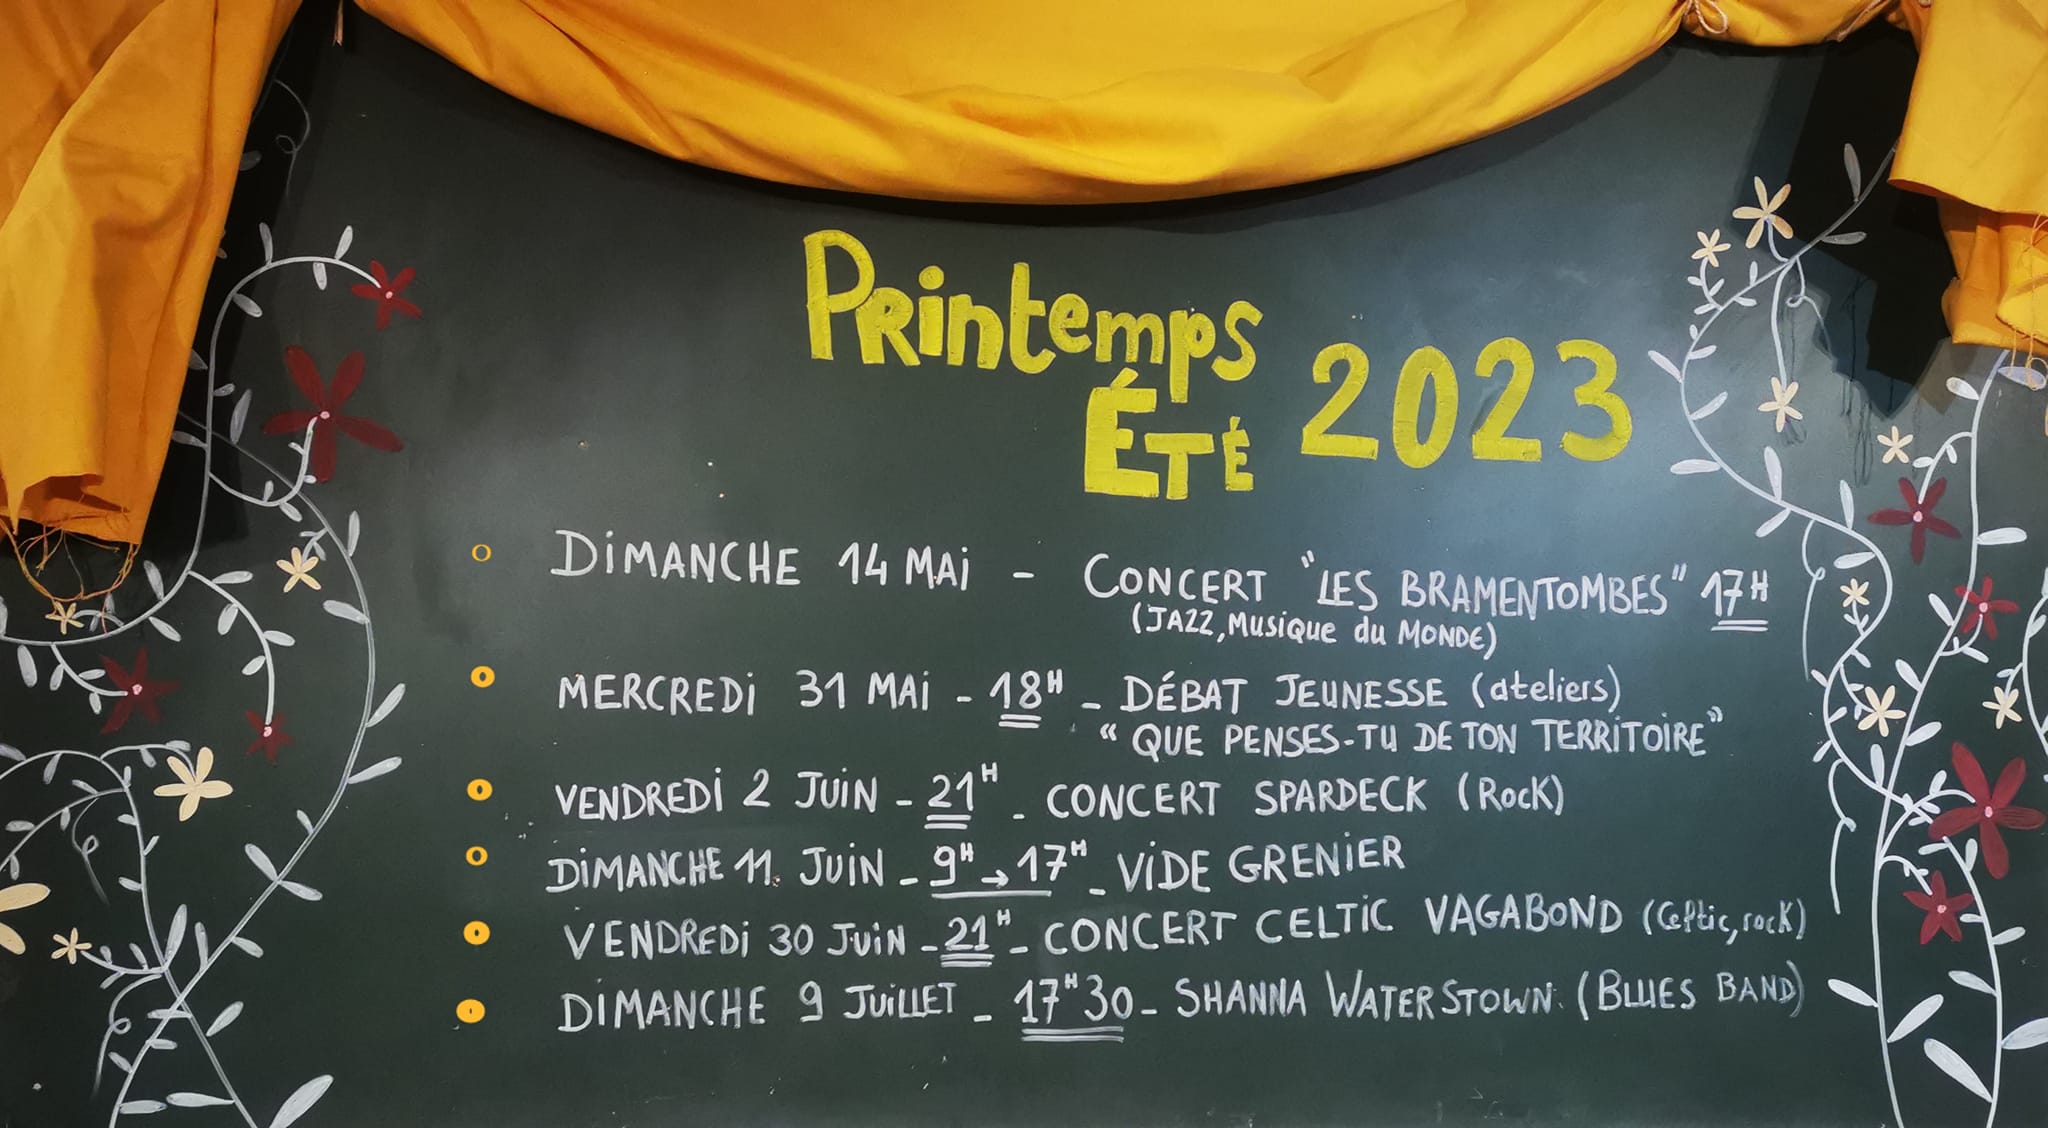 Printemps
Été 2023
DIMANCHE 14 MAI - CONCERT "LES BRAMENTOMBES" 17H
(JAZZ, Musique du MONDE)
MERCREDI 31 MAI - 18H - DÉBAT JEUNESSE (ateliers)
"QUE PENSES-TU DE TON TERRITOIRE"
VENDREDI 2 JUIN - 21H - CONCERT SPARDECK (Rock)
DIMANCHE 11 JUIN - 9H → 17H - VIDE GRENIER
VENDREDI 30 JUIN - 21H - CONCERT CELTIC VAGABOND (Celtic, rock)
DIMANCHE 9 JUILLET - 17H30 - SHANNA WATERSTOWN (BLUES BAND)